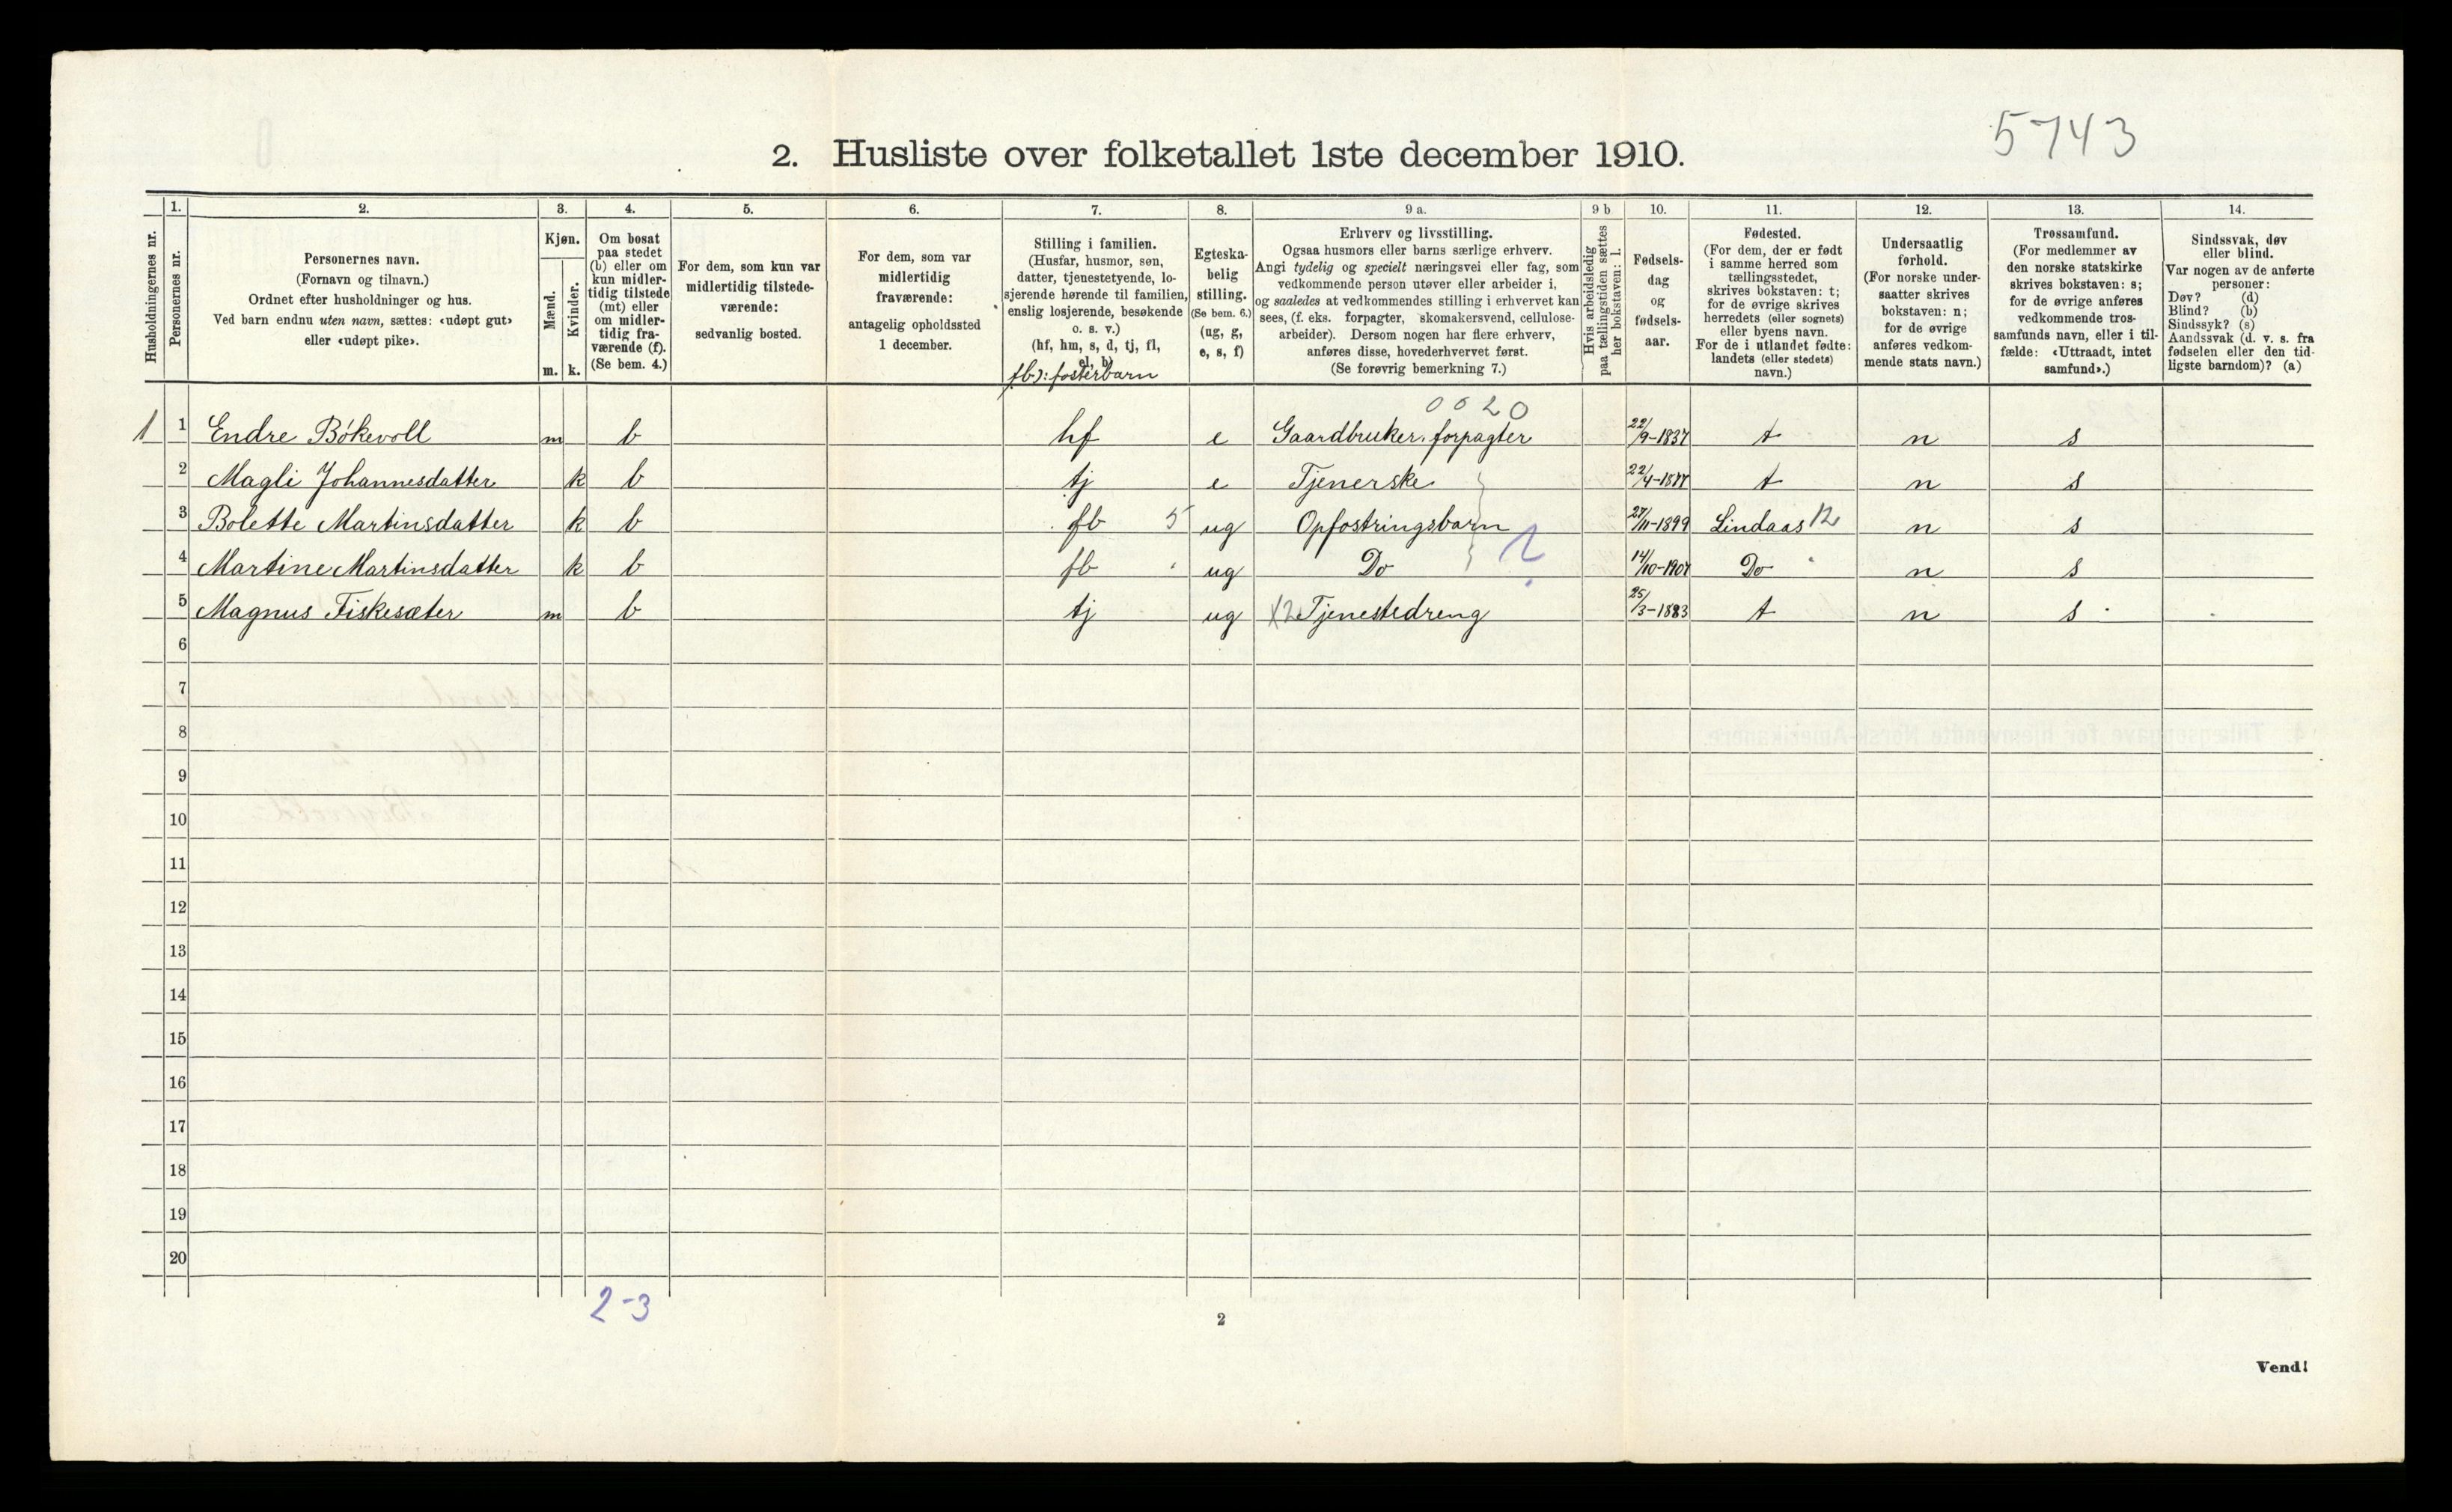 5743
2. Husliste over folketallet 1ste december 1910.
Husholdningernes nr.
1. Personernes nr.
2. Personernes navn.
(Fornavn og tilnavn.)
Ordnet efter husholdninger og hus.
Ved barn endnu uten navn, sættes: «udøpt gut»
eller «udøpt pike».
3. Kjøn.
Mænd. m.
Kvinder. k.
4. Om bosat
paa stedet
(b) eller om
kun midler-
tidig tilstede
(mt) eller
om midler-
tidig fra-
værende (f).
(Se bem. 4.)
5. For dem, som kun var
midlertidig tilstede-
værende:
sedvanlig bosted.
6. For dem, som var
midlertidig
fraværende:
antagelig opholdssted
1 december.
7. Stilling i familien.
(Husfar, husmor, søn,
datter, tjenestetyende, lo-
sjerende hørende til familien,
enslig losjerende, besøkende
o. s. v.)
(hf, hm, s, d, tj, fl,
el, b)
fb): fosterbarn
8. Egteska-
belig
stilling.
(Se bem. 6.)
(ug, g,
e, s, f)
9 a. Erhverv og livsstilling.
Ogsaa husmors eller barns særlige erhverv.
Angi tydelig og specielt næringsvei eller fag, som
vedkommende person utøver eller arbeider i,
og saaledes at vedkommendes stilling i erhvervet kan
sees, (f. eks. forpagter, skomakersvend, cellulose-
arbeider). Dersom nogen har flere erhverv,
anføres disse, hovederhvervet først.
(Se forøvrig bemerkning 7.)
9 b Hvis arbeidsledig
paa tællingstiden sættes
her bokstaven: l.
10. Fødsels-
dag
og
fødsels-
aar.
11. Fødested.
(For dem, der er født
i samme herred som
tællingsstedet,
skrives bokstaven: t;
for de øvrige skrives
herredets (eller sognets)
eller byens navn.
For de i utlandet fødte:
landets (eller stedets)
navn.)
12. Undersaatlig
forhold.
(For norske under-
saatter skrives
bokstaven: n;
for de øvrige
anføres vedkom-
mende stats navn.)
13. Trossamfund.
(For medlemmer av
den norske statskirke
skrives bokstaven: s;
for de øvrige anføres
vedkommende tros-
samfunds navn, eller i til-
fælde: «Uttraadt, intet
samfund».)
14. Sindssvak, døv
eller blind.
Var nogen av de anførte
personer:
Døv? (d)
Blind? (b)
Sindssyk? (s)
Aandssvak (d. v. s. fra
fødselen eller den tid-
ligste barndom)? (a)
0020
1 1 Endre Bökevoll m b hf e Gaardbruker. forpagter 22/9-1837 t n s
2 Magli Johannesdatter k b tj e Tjenerske t n s
3 Bolette Martinsdatter k b fb 5 ug Opfostringsbarn 27/11-1899 Lindaas 12 n s
4 Martine Martinsdatter k b fb ug Do ? 14/10-1907 Do n s
5 Magnus Fiskesæter m b tj ug X2 Tjenestedreng 25/3-1883 t n s
6
7
8
9
10
11
12
13
14
15
16
17
18
19
20
2-3
2
Vend!